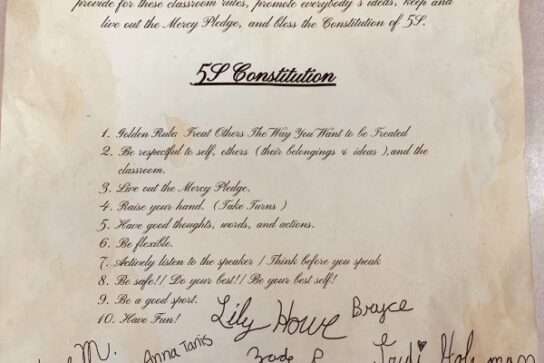 provide for these classroom rules, promote everybody's ideas, keep and
live out the Mercy Pledge, and bless the Constitution of 5S.
5S Constitution
1. Golden Rule: Treat Others The Way You Want to be Treated
2. Be respectful to self, others (their belongings & ideas ),and the
classroom.
3. Live out the Mercy Pledge.
4. Raise your hand. (Take Turns )
5. Have good thoughts, words, and actions.
6. Be flexible.
7. Actively listen to the speaker / Think before you speak
8. Be safe!! / Do your best!! / Be your best self!
9. Be a good sport.
10. Have Fun!
Lily Howe Brayce
M. Anna Tanis P.